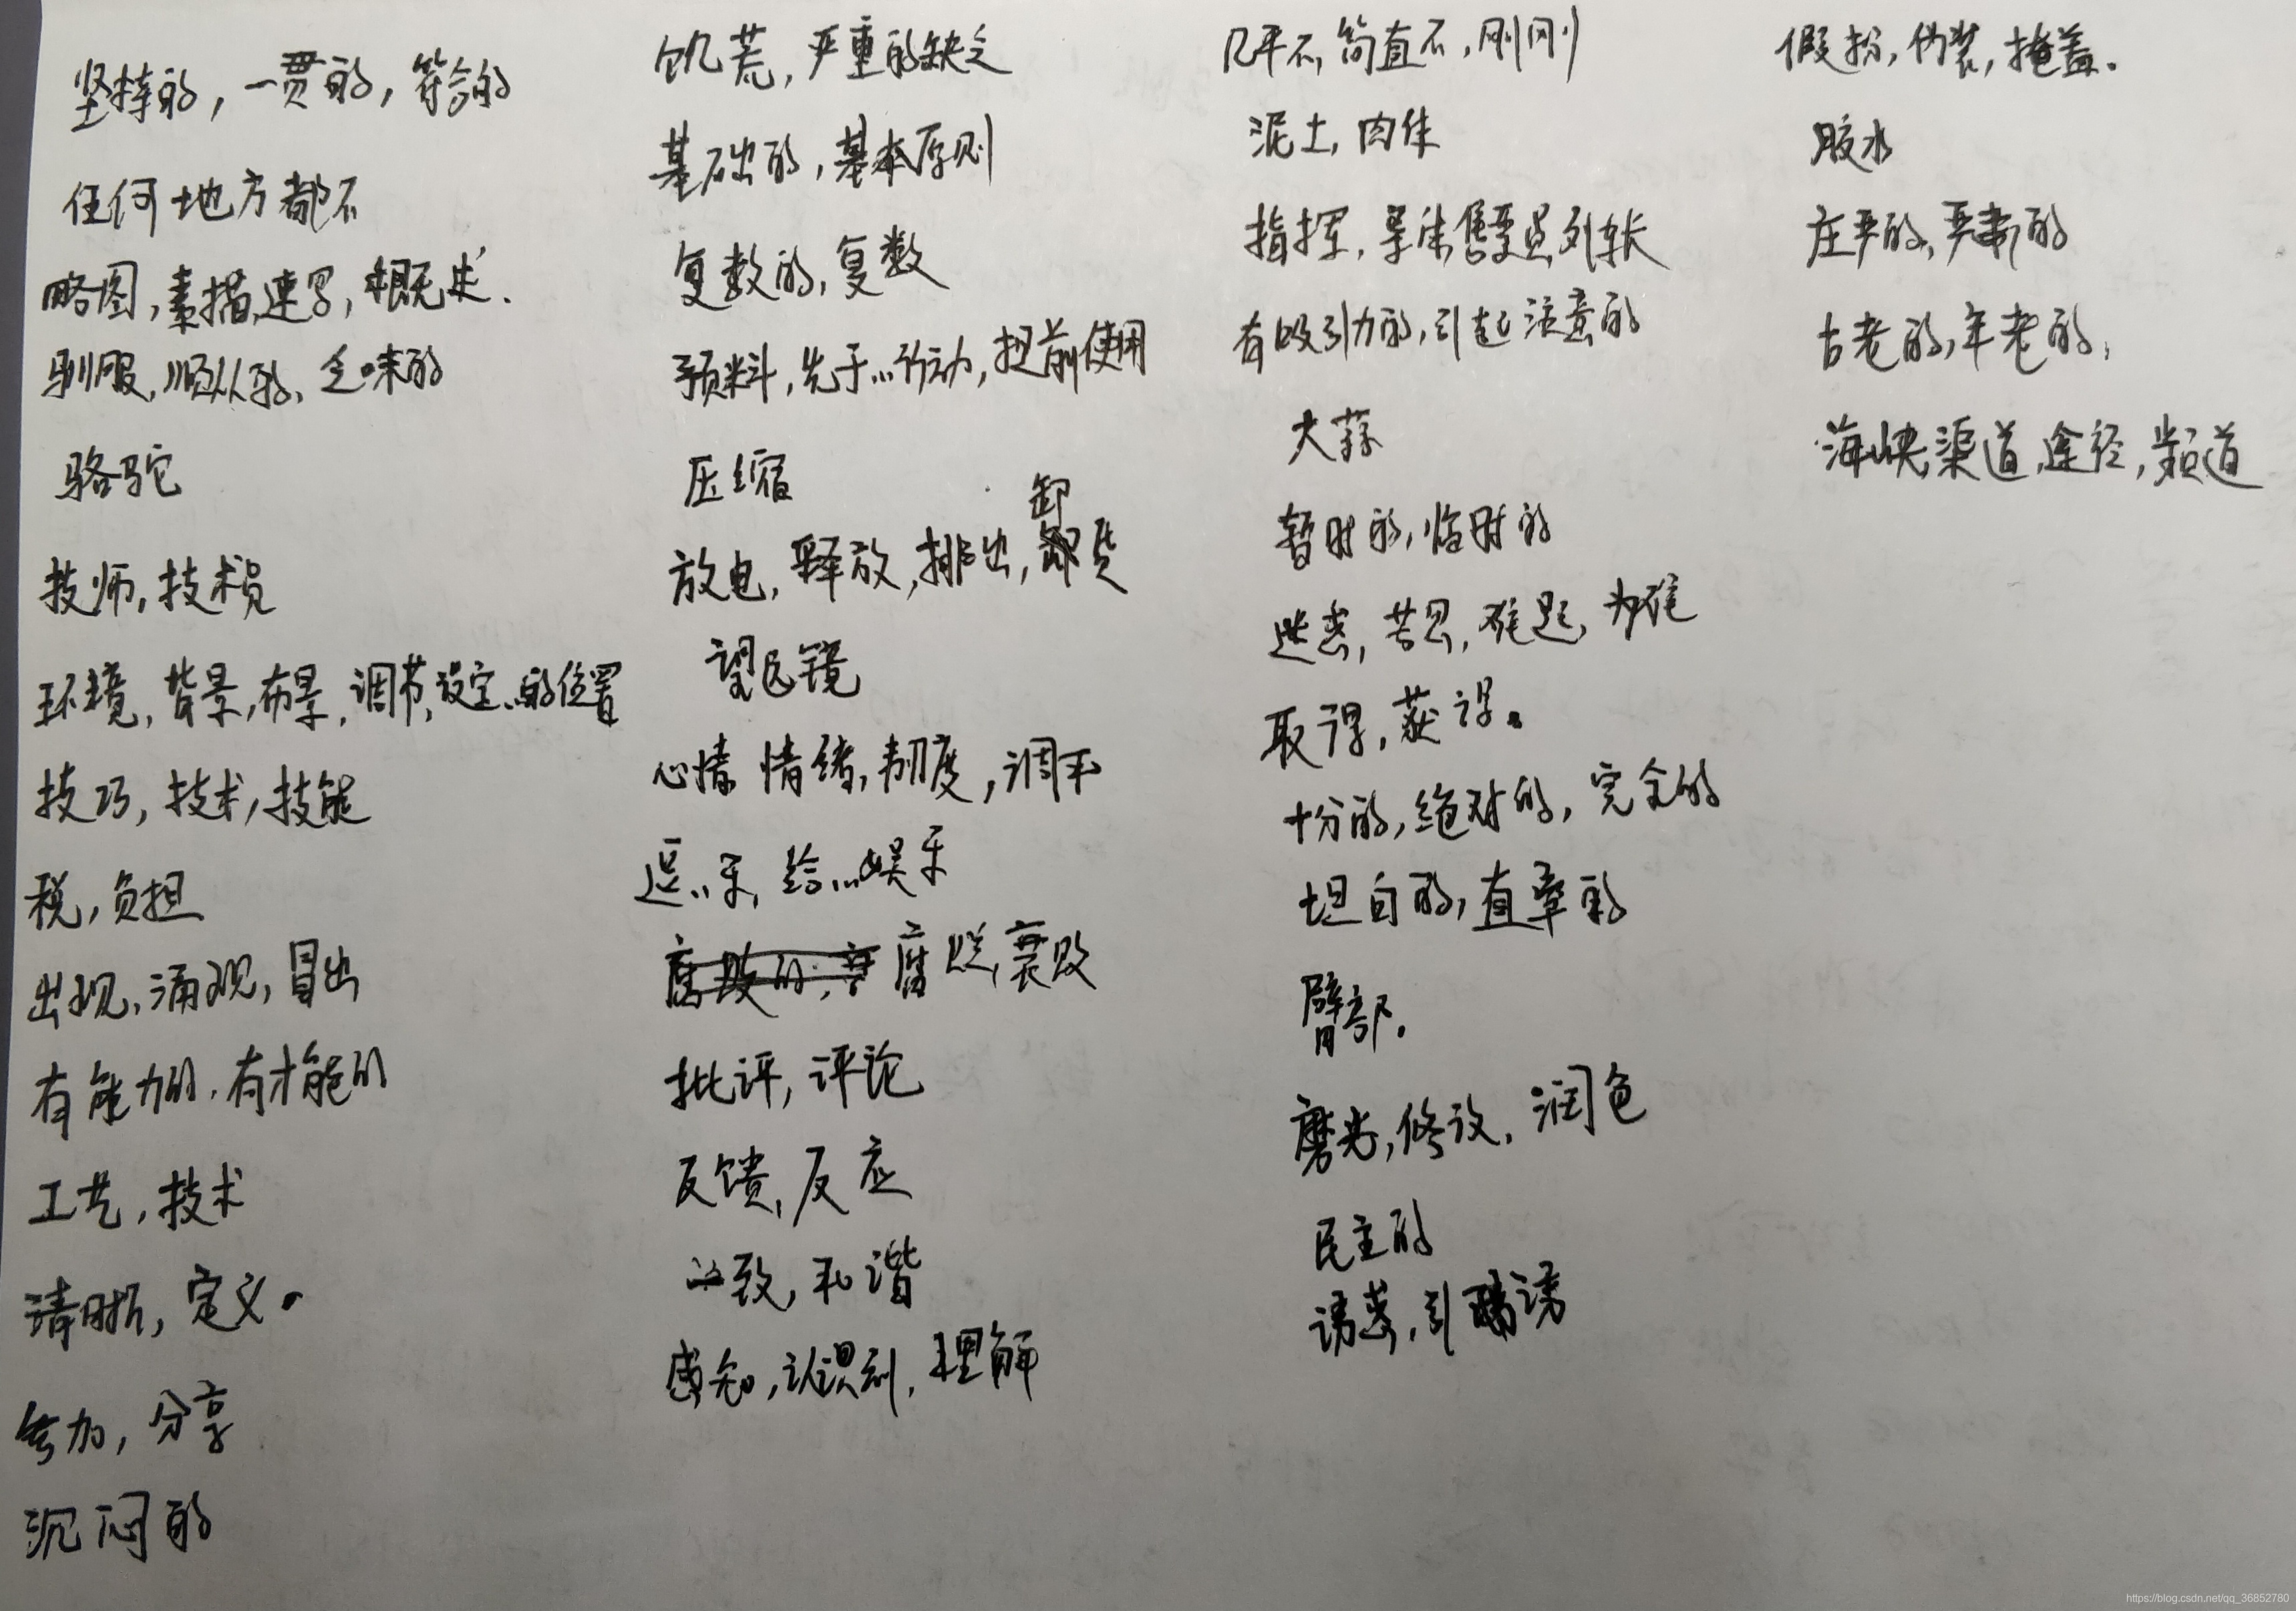 坚持的，一贯的，符合的
任何地方都不
略图，素描，速写，概述．
驯服，顺从的、乏味的
骆驼
技师，技术员
环境，背景，布景，调节，设定...的位置
技巧，技术，技能
税，负担
出现，涌现，冒出
有能力的．有才能的
工艺，技术
清晰，定义。
参加，分享
沉闷的
饥荒，严重的缺乏
基础的，基本原则
复数的，复数
预料，先于...行动，提前使用
压缩
卸
放电，释放，排出，卸货
望远镜
心情 情绪，韧度，调和
逗...乐，给...娱乐
腐烂，衰败
批评，评论
反馈，反应
一致，和谐
感知，认识到，理解
几乎不，简直不，刚刚
泥土，肉体
指挥，导体，售票员，列车长
有吸引力的，引起注意的
大蒜
暂时的，临时的
迷惑，苦思，难题，为难
取得，获得。
十分的，绝对的，完全的
坦白的，直率的
臂部．
磨光，修改，润色
民主的
诱惑，引诱
假扮，伪装，掩盖．
胶水
庄严的，严肃的
古老的，年老的，
海峡，渠道，途径，频道
https://blog.csdn.net/qq_36852780